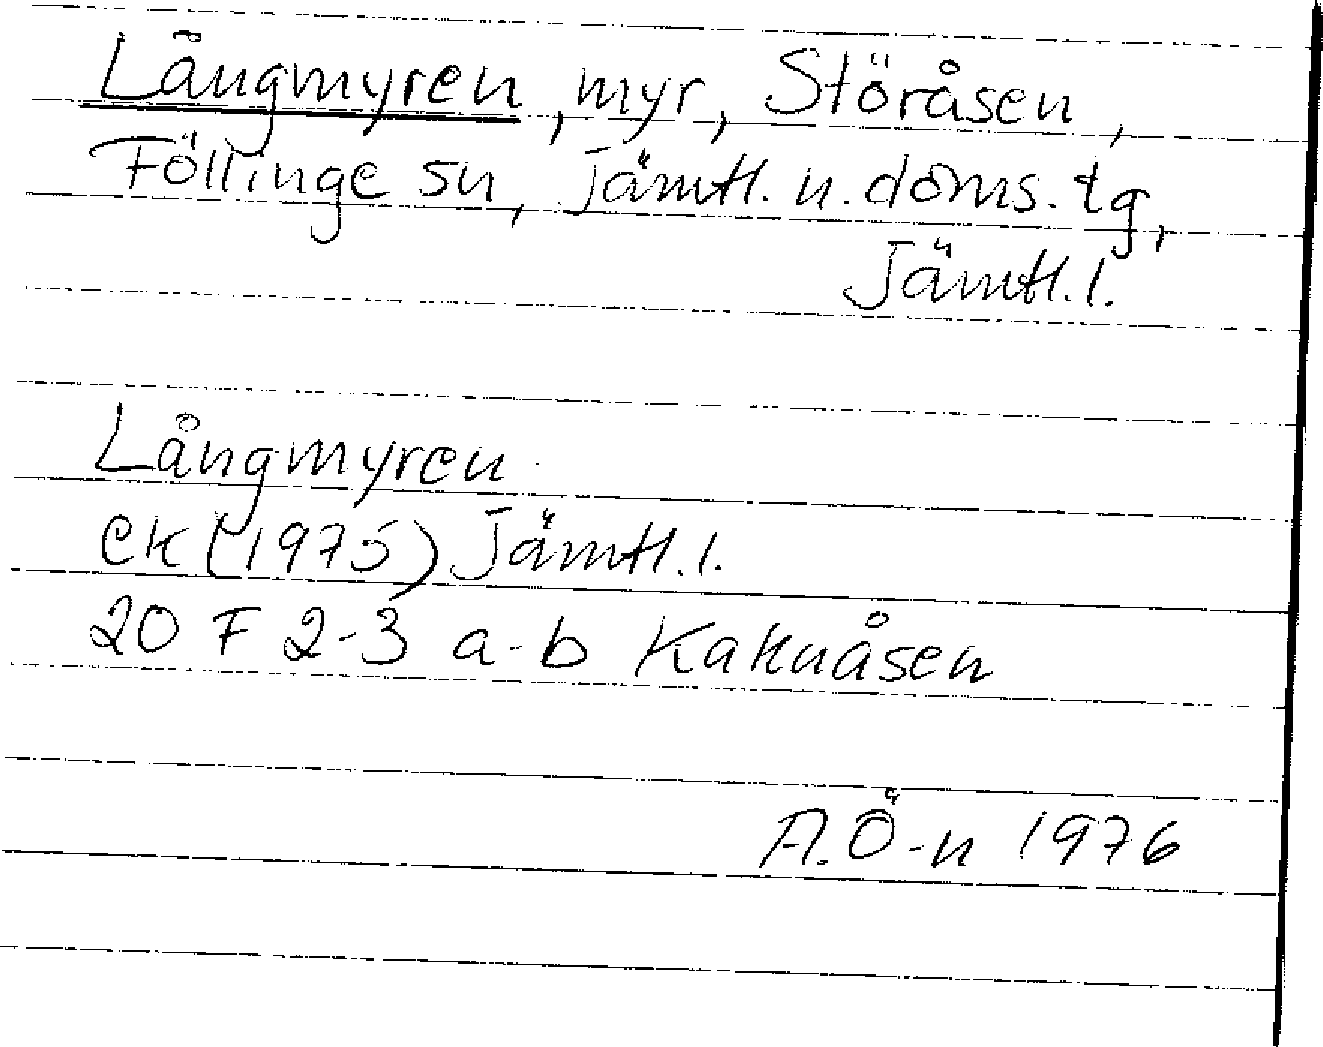 Långmyren, myr, Störåsen,
Föllinge sn, Jämtl. n. doms. tg,
Jämtl. l.
Långmyren
EK (1975) Jämtl. l.
20 F 2-3 a-b Kaknåsen
A. Ö-n 1976